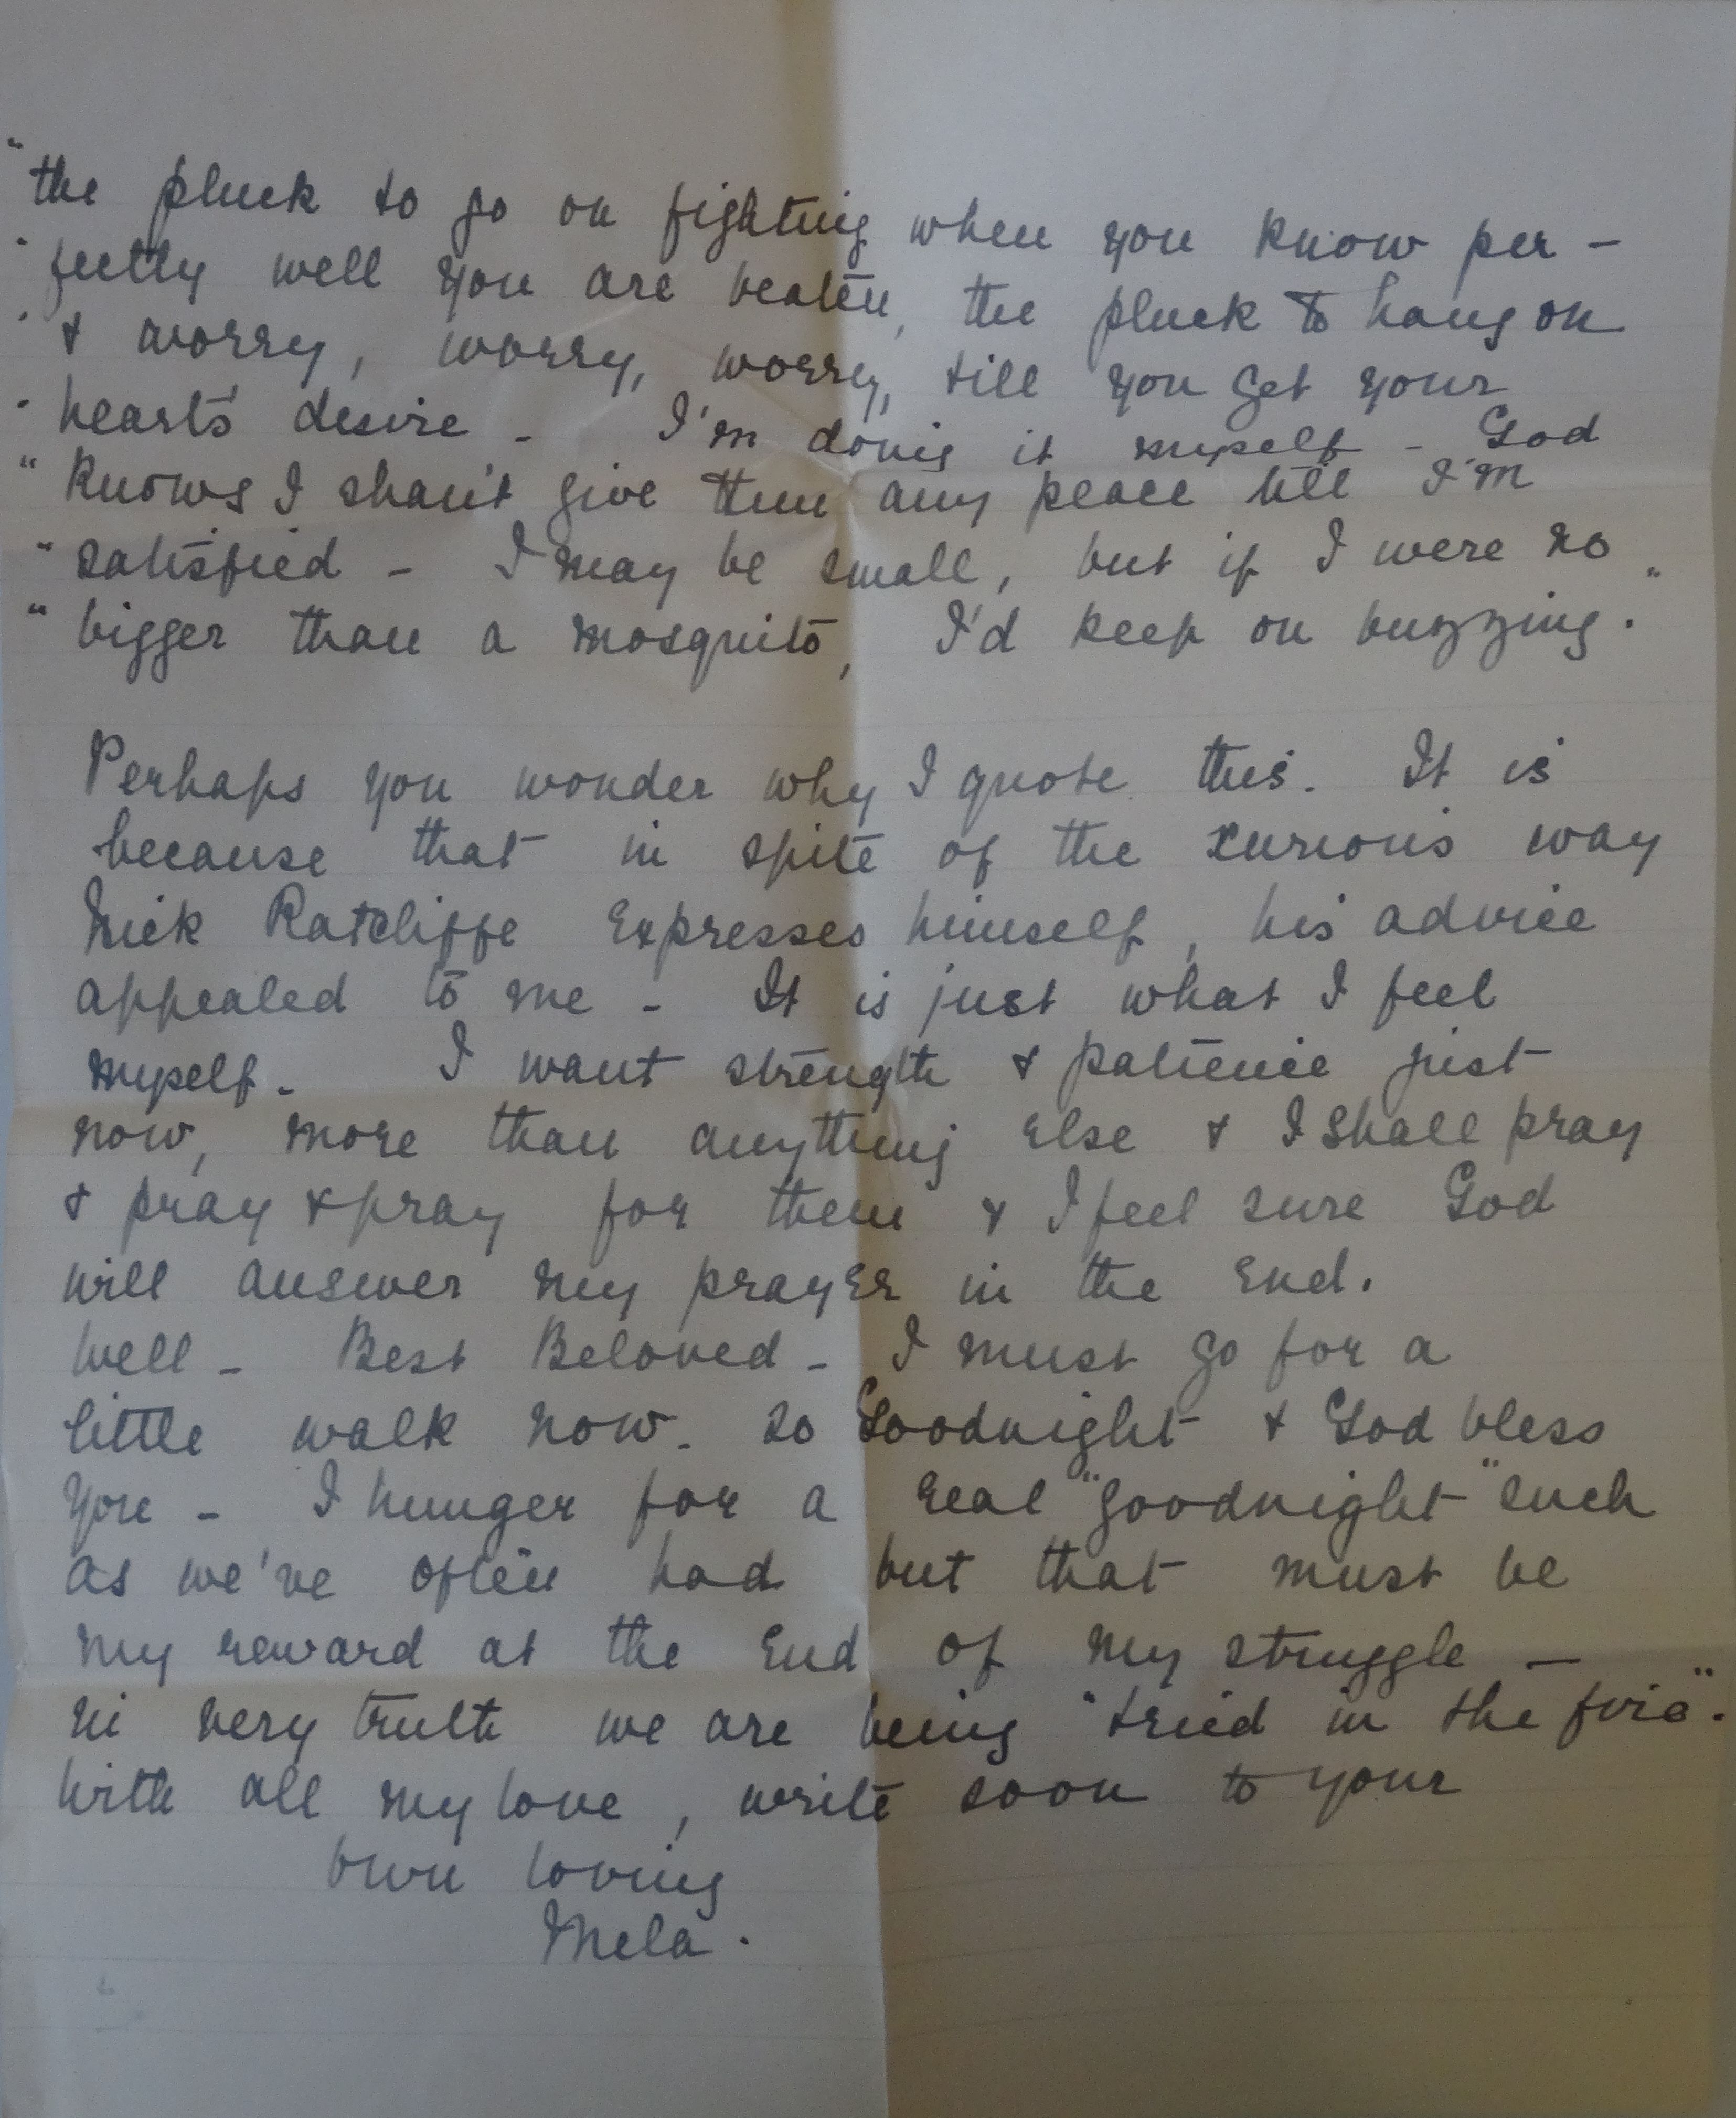 "the pluck to go on fighting when you know per-
"fectly well you are beaten, the pluck to hang on
"& worry, worry, worry, till you get your
"heart's desire - I'm doing it myself - God
"knows I shan't give them any peace till I'm
"satisfied - I may be small, but if I were no
"bigger than a mosquito, I'd keep on buzzing."
Perhaps you wonder why I quote this. It is
because that in spite of the curious way
Nick Ratcliffe expresses himself, his advice
appealed to me - It is just what I feel
myself - I want strength & patience just
now, more than anything else & I shall pray
& pray & pray for them & I feel sure God
will answer my prayer in the end.
Well - Best Beloved - I must go for a
little walk now. So Goodnight & God bless
you - I hunger for a real "goodnight" such
as we've often had but that must be
my reward at the end of my struggle -
in very truth we are being "tried in the fire".
With all my love, write soon to your
own loving
Mela.